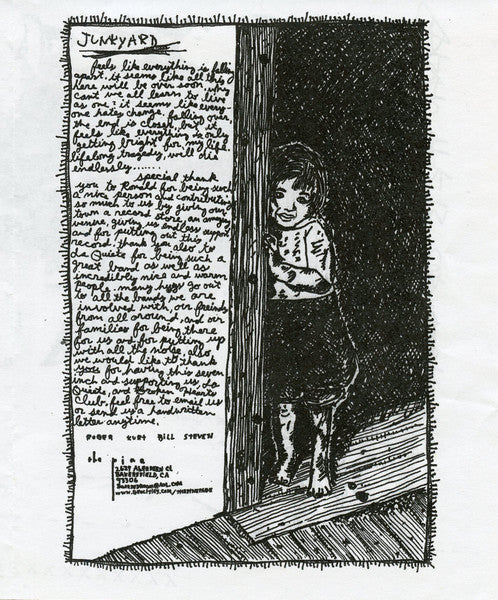 JUNKYARD
feels like everything is falling
apart. it seems like all this
here will be over soon. why
cant we all learn to live
as one? it seems like every
one hates change. falling over,
the end is close. but it
feels like everything is only
getting bright for my life.
lifelong tragedy, we'll die
endlessly......
special thank
you to Ronald for being such
a nice person and contributing
so much to us by giving our
town a record store, an amazing
venue, giving us endless
and for putting out this
record. thank you also to
La Quiete for being such a
great band as well as
incredibly nice and warm
people. many hugs go out
to all the bands we are
involved with, our freinds
from all around, and our
families for being there
for us and for putting up
with all the noise. also
we would like to thank
you for having this seven
inch and supporting us, La
Quiete, and Broken Hearts
Club. feel free to email us
or send us a handwritten
letter anytime.
ROGER KURT BILL STEVEN
the pine
2629 ALDERDEEN Ct
BAKERSFIELD, CA
93306